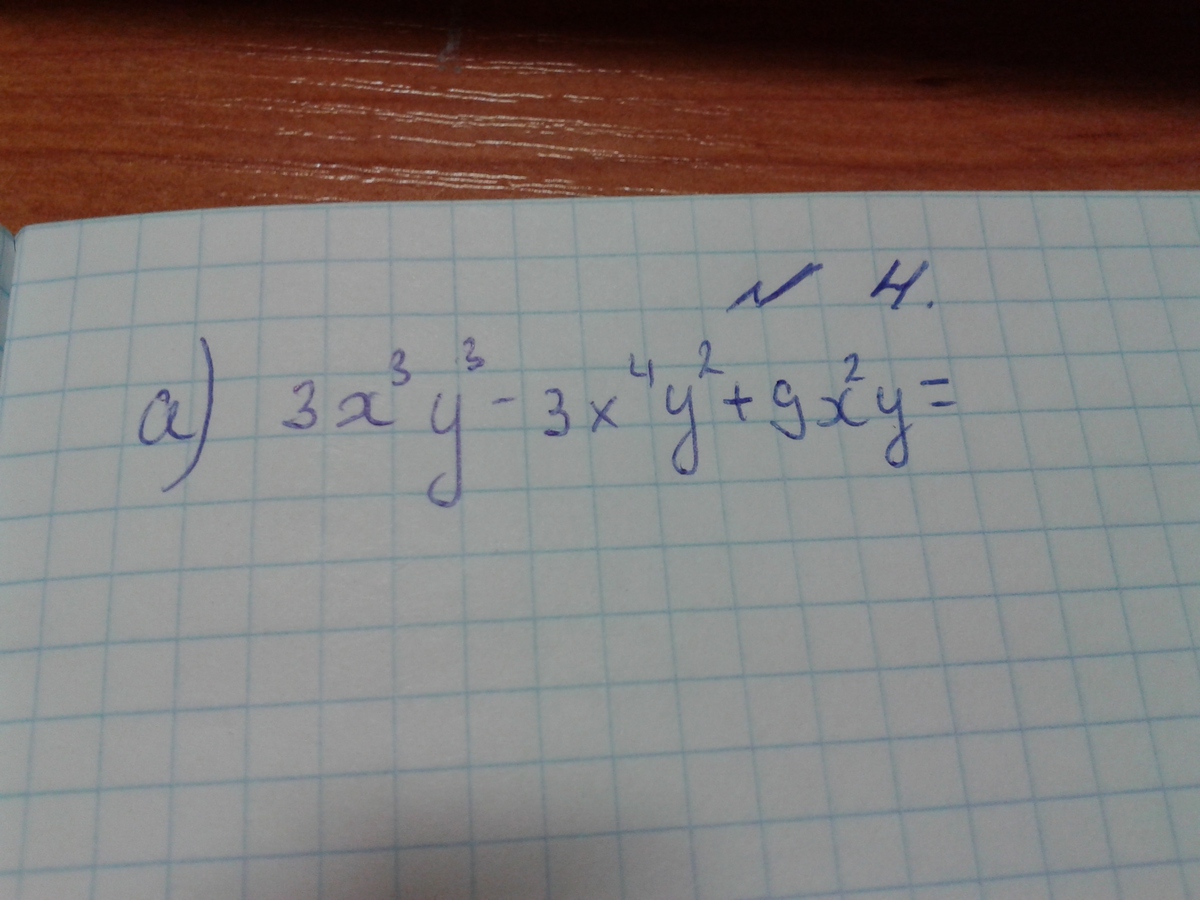 № 4.
а) 3x³y³ - 3x⁴y² + 9x²y =